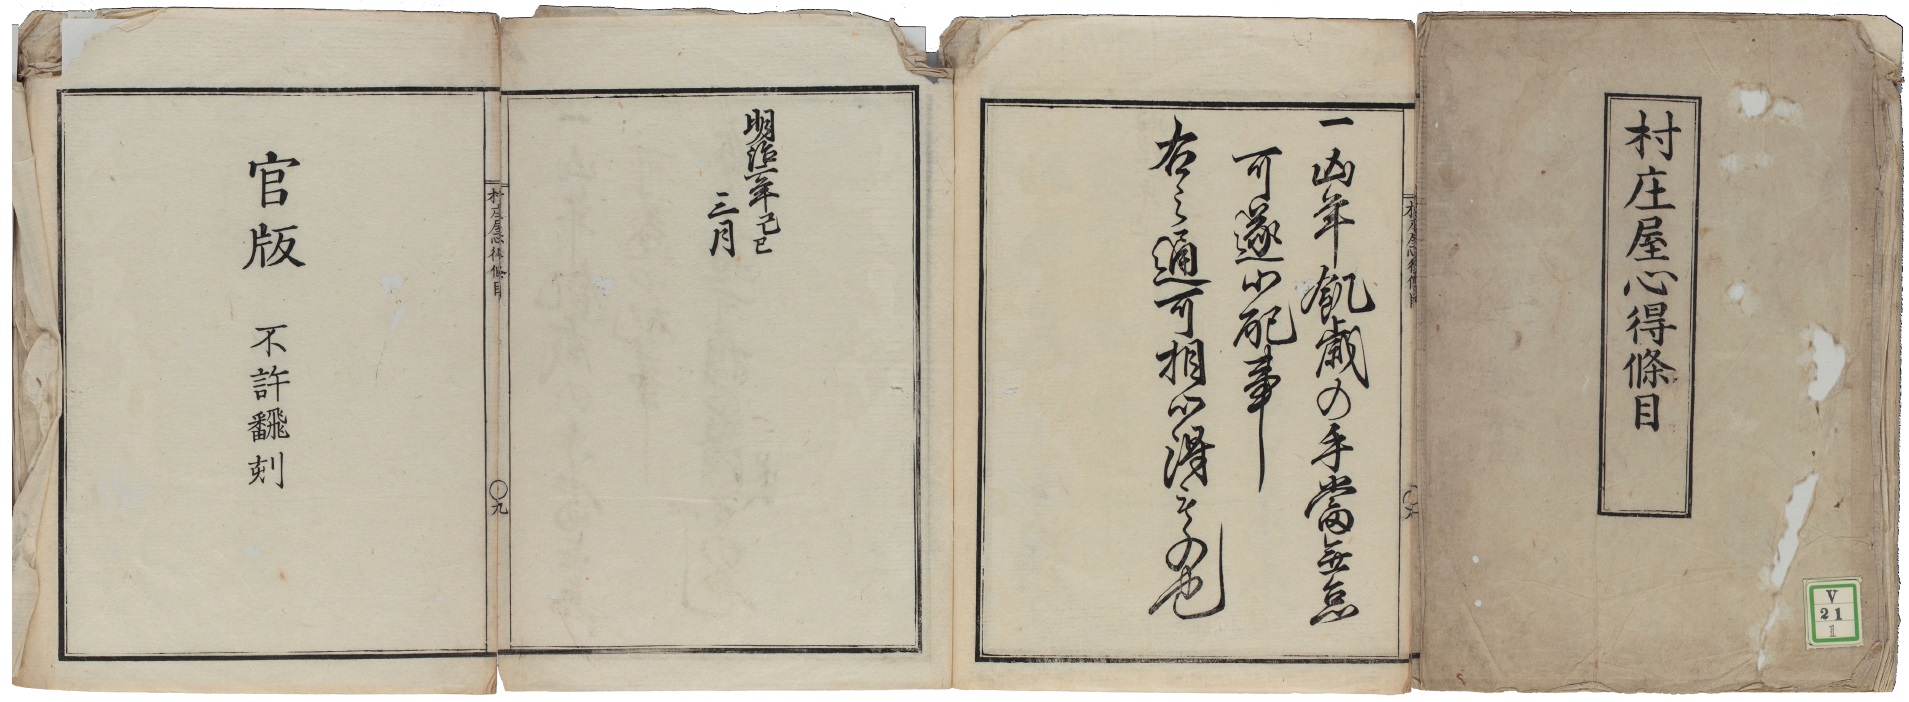 村庄屋心得條目
V
21
1
一凶年飢歳の手當無怠
可遂心配事
右之通可相心得もの也
明治二年己巳
三月
村庄屋心得條目
九
官版
不許飜刻